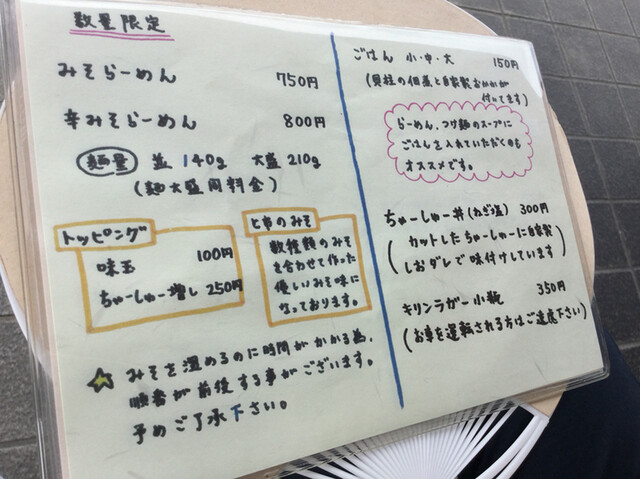 数量限定
みそらーめん 750円
辛みそらーめん 800円
麺量 並140g 大盛210g
(麺大盛同料金)
トッピング
味玉 100円
ちゃーしゅー増し 250円
と市のみそ
数種類のみそ
を合わせて作った
優しいみそ味に
なっております。
☆ みそを温めるのに時間がかかる為、
順番が前後する事がございます。
予めご了承下さい。
ごはん 小・中・大 150円
(貝柱の佃煮と自家製おかかが
付いてます)
らーめん、つけ麺のスープに
ごはんを入れていただくのも
オススメです。
ちゃーしゅー丼(ねぎ塩) 300円
(カットしたちゃーしゅーに自家製
しおダレで味付けしています)
キリンラガー小瓶 350円
(お車を運転される方はご遠慮下さい)